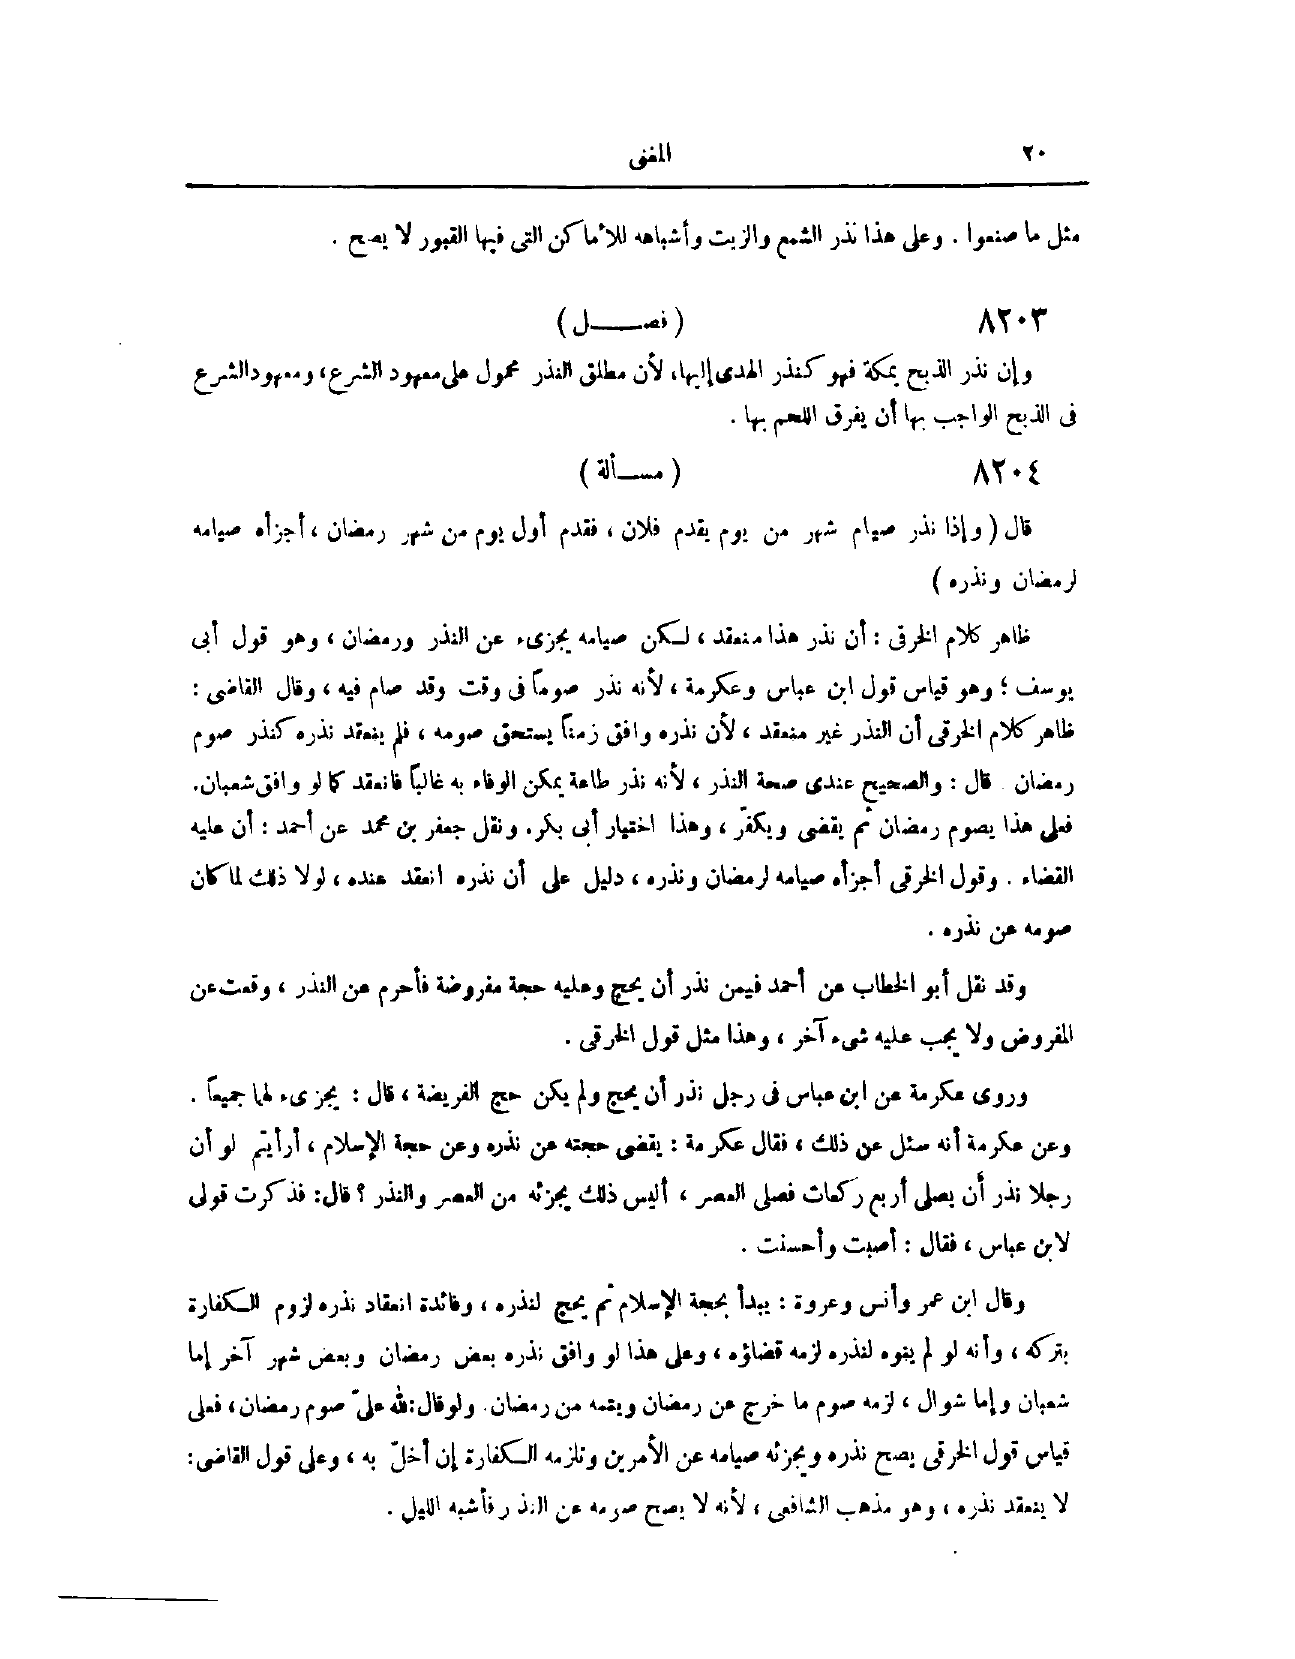 ٢٠
المغنى
مثل ما صنعوا . وعلى هذا نذر الشمع والزيت وأشباهه للأماكن التى فيها القبور لا يصح .
٨٢٠٣
( فصـــــل )
وإن نذر الذبح بمكة فهو كنذر الهدى إليها، لأن مطلق النذر محمول على معهود الشرع، ومعهود الشرع
فى الذبح الواجب بها أن يفرق اللحم بها .
٨٢٠٤
( مســألة )
قال ( وإذا نذر صيام شهر من يوم يقدم فلان ، فقدم أول يوم من شهر رمضان ، أجزأه صيامه
لرمضان ونذره )
ظاهر كلام الخرقى : أن نذر هذا منعقد ، لكن صيامه يجزىء عن النذر ورمضان ، وهو قول أبى
يوسف ؛ وهو قياس قول ابن عباس وعكرمة ، لأنه نذر صوماً فى وقت وقد صام فيه ، وقال القاضى :
ظاهر كلام الخرقى أن النذر غير منعقد ، لأن نذره وافق زمناً يستحق صومه ، فلم ينعقد نذره كنذر صوم
رمضان . قال : والصحيح عندى صحة النذر ، لأنه نذر طاعة يمكن الوفاء به غالباً فانعقد كما لو وافق شعبان.
فعلى هذا يصوم رمضان ثم يقضى ويكفّر ، وهذا اختيار أبى بكر. ونقل جعفر بن محمد عن أحمد : أن عليه
القضاء . وقول الخرقى أجزأه صيامه لرمضان ونذره ، دليل على أن نذره انعقد عنده ، لولا ذلك لما كان
صومه عن نذره .
وقد نقل أبو الخطاب عن أحمد فيمن نذر أن يحج وعليه حجة مفروضة فأحرم عن النذر ، وقعت عن
المفروض ولا يجب عليه شىء آخر ، وهذا مثل قول الخرقى .
وروى عكرمة عن ابن عباس فى رجل نذر أن يحج ولم يكن حج الفريضة ، قال : يجزىء لهما جميعاً .
وعن عكرمة أنه سئل عن ذلك ، فقال عكرمة : يقضى حجته عن نذره وعن حجة الإسلام ، أرأيتم لو أن
رجلا نذر أن يصلى أربع ركعات فصلى العصر ، أليس ذلك يجزئه من العصر والنذر ؟ قال: فذكرت قولى
لابن عباس ، فقال : أصبت وأحسنت .
وقال ابن عمر وأنس وعروة : يبدأ بحجة الإسلام ثم يحج لنذره ، وفائدة انعقاد نذره لزوم الكفارة
بتركه ، وأنه لو لم ينوه لنذره لزمه قضاؤه ، وعلى هذا لو وافق نذره بعض رمضان وبعض شهر آخر إما
شعبان وإما شوال ، لزمه صوم ما خرج عن رمضان ويتمه من رمضان. ولو قال:لله علىّ صوم رمضان، فعلى
قياس قول الخرقى يصح نذره ويجزئه صيامه عن الأمرين وتلزمه الكفارة إن أخلّ به ، وعلى قول القاضى:
لا ينعقد نذره ، وهو مذهب الشافعى ، لأنه لا يصح صومه عن النذر فأشبه الليل .